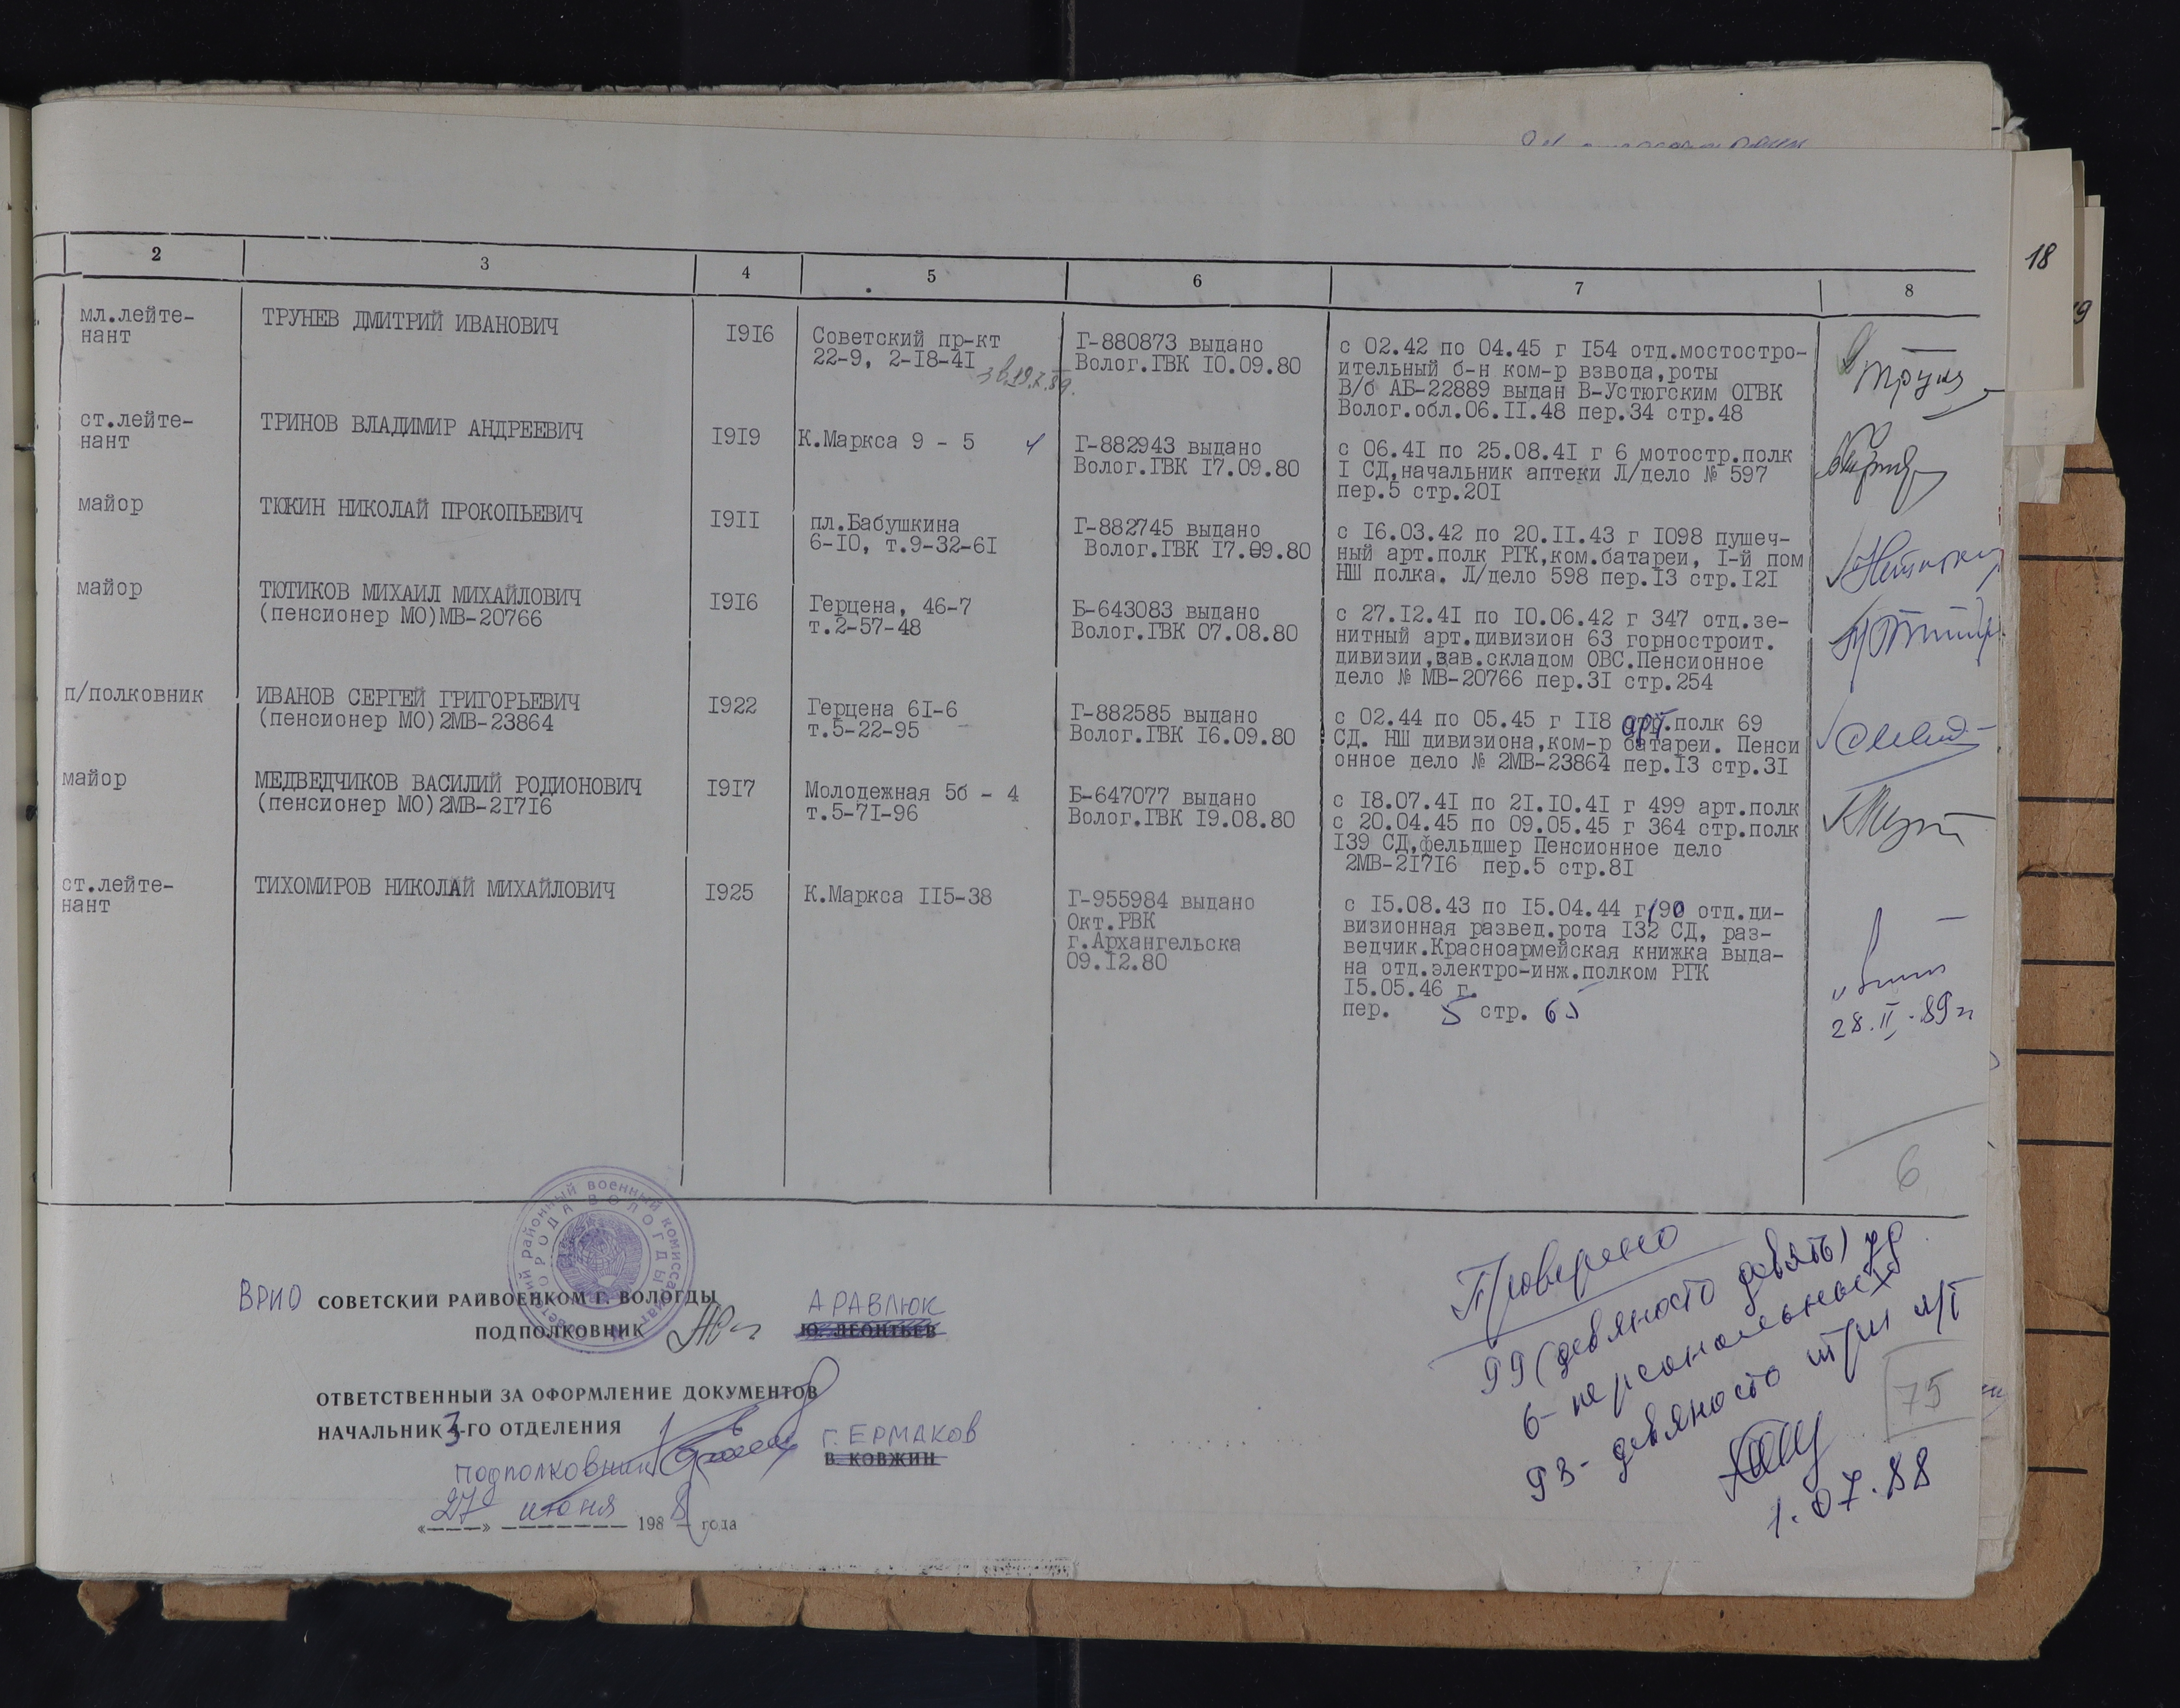 18
19
2
3
4
5
6
7
8
мл.лейте-
нант
ТРУНЕВ ДМИТРИЙ ИВАНОВИЧ
I9I6
Советский пр-кт
22-9, 2-I8-4I
Г-880873 выдано
Волог.ГВК I0.09.80
с 02.42 по 04.45 г I54 отд.мостостро-
ительный б-н ком-р взвода,роты
В/б АБ-22889 выдан В-Устюгским ОГВК
Волог.обл.06.II.48 пер.34 стр.48
ст.лейте-
нант
ТРИНОВ ВЛАДИМИР АНДРЕЕВИЧ
I9I9
К.Маркса 9 - 5
Г-882943 выдано
Волог.ГВК I7.09.80
с 06.4I по 25.08.4I г 6 мотостр.полк
I СД,начальник аптеки Л/дело № 597
пер.5 стр.20I
майор
ТЮКИН НИКОЛАЙ ПРОКОПЬЕВИЧ
I9II
пл.Бабушкина
6-I0, т.9-32-6I
Г-882745 выдано
Волог.ГВК I7.09.80
с I6.03.42 по 20.II.43 г I098 пушеч-
ный арт.полк РГК,ком.батареи, I-й пом
НШ полка. Л/дело 598 пер.I3 стр.I2I
майор
ТЮТИКОВ МИХАИЛ МИХАЙЛОВИЧ
(пенсионер МО)МВ-20766
I9I6
Герцена, 46-7
т.2-57-48
Б-643083 выдано
Волог.ГВК 07.08.80
с 27.I2.4I по I0.06.42 г 347 отд.зе-
нитный арт.дивизион 63 горностроит.
дивизии,зав.складом ОВС.Пенсионное
дело № МВ-20766 пер.3I стр.254
п/полковник
ИВАНОВ СЕРГЕЙ ГРИГОРЬЕВИЧ
(пенсионер МО)2МВ-23864
I922
Герцена 6I-6
т.5-22-95
Г-882585 выдано
Волог.ГВК I6.09.80
с 02.44 по 05.45 г II8 арт.полк 69
СД. НШ дивизиона,ком-р батареи. Пенси
онное дело № 2МВ-23864 пер.I3 стр.3I
майор
МЕДВЕДЧИКОВ ВАСИЛИЙ РОДИОНОВИЧ
(пенсионер МО)2МВ-2I7I6
I9I7
Молодежная 5б - 4
т.5-7I-96
Б-647077 выдано
Волог.ГВК I9.08.80
с I8.07.4I по 2I.I0.4I г 499 арт.полк
с 20.04.45 по 09.05.45 г 364 стр.полк
I39 СД,фельдшер Пенсионное дело
2МВ-2I7I6 пер.5 стр.8I
ст.лейте-
нант
ТИХОМИРОВ НИКОЛАЙ МИХАЙЛОВИЧ
I925
К.Маркса II5-38
Г-955984 выдано
Окт.РВК
г.Архангельска
09.I2.80
с I5.08.43 по I5.04.44 г 190 отд.ди-
визионная развед.рота I32 СД, раз-
ведчик.Красноармейская книжка выда-
на отд.электро-инж.полком РГК
I5.05.46 г.
пер. 5 стр. 65
28.II.89г
6
Советский районный военный комиссариат
ГОРОДА ВОЛОГДЫ
ВРИО СОВЕТСКИЙ РАЙВОЕНКОМ Г. ВОЛОГДЫ
ПОДПОЛКОВНИК
АРАВЛЮК
Ю. ЛЕОНТЬЕВ
ОТВЕТСТВЕННЫЙ ЗА ОФОРМЛЕНИЕ ДОКУМЕНТОВ
НАЧАЛЬНИК 3-ГО ОТДЕЛЕНИЯ
подполковник
Г. ЕРМАКОВ
В. КОВЖИН
«27» июня 1988 года
Проверено
99 (девяносто девять) уд
6- персональных
93- девяносто три
75
1.07.88